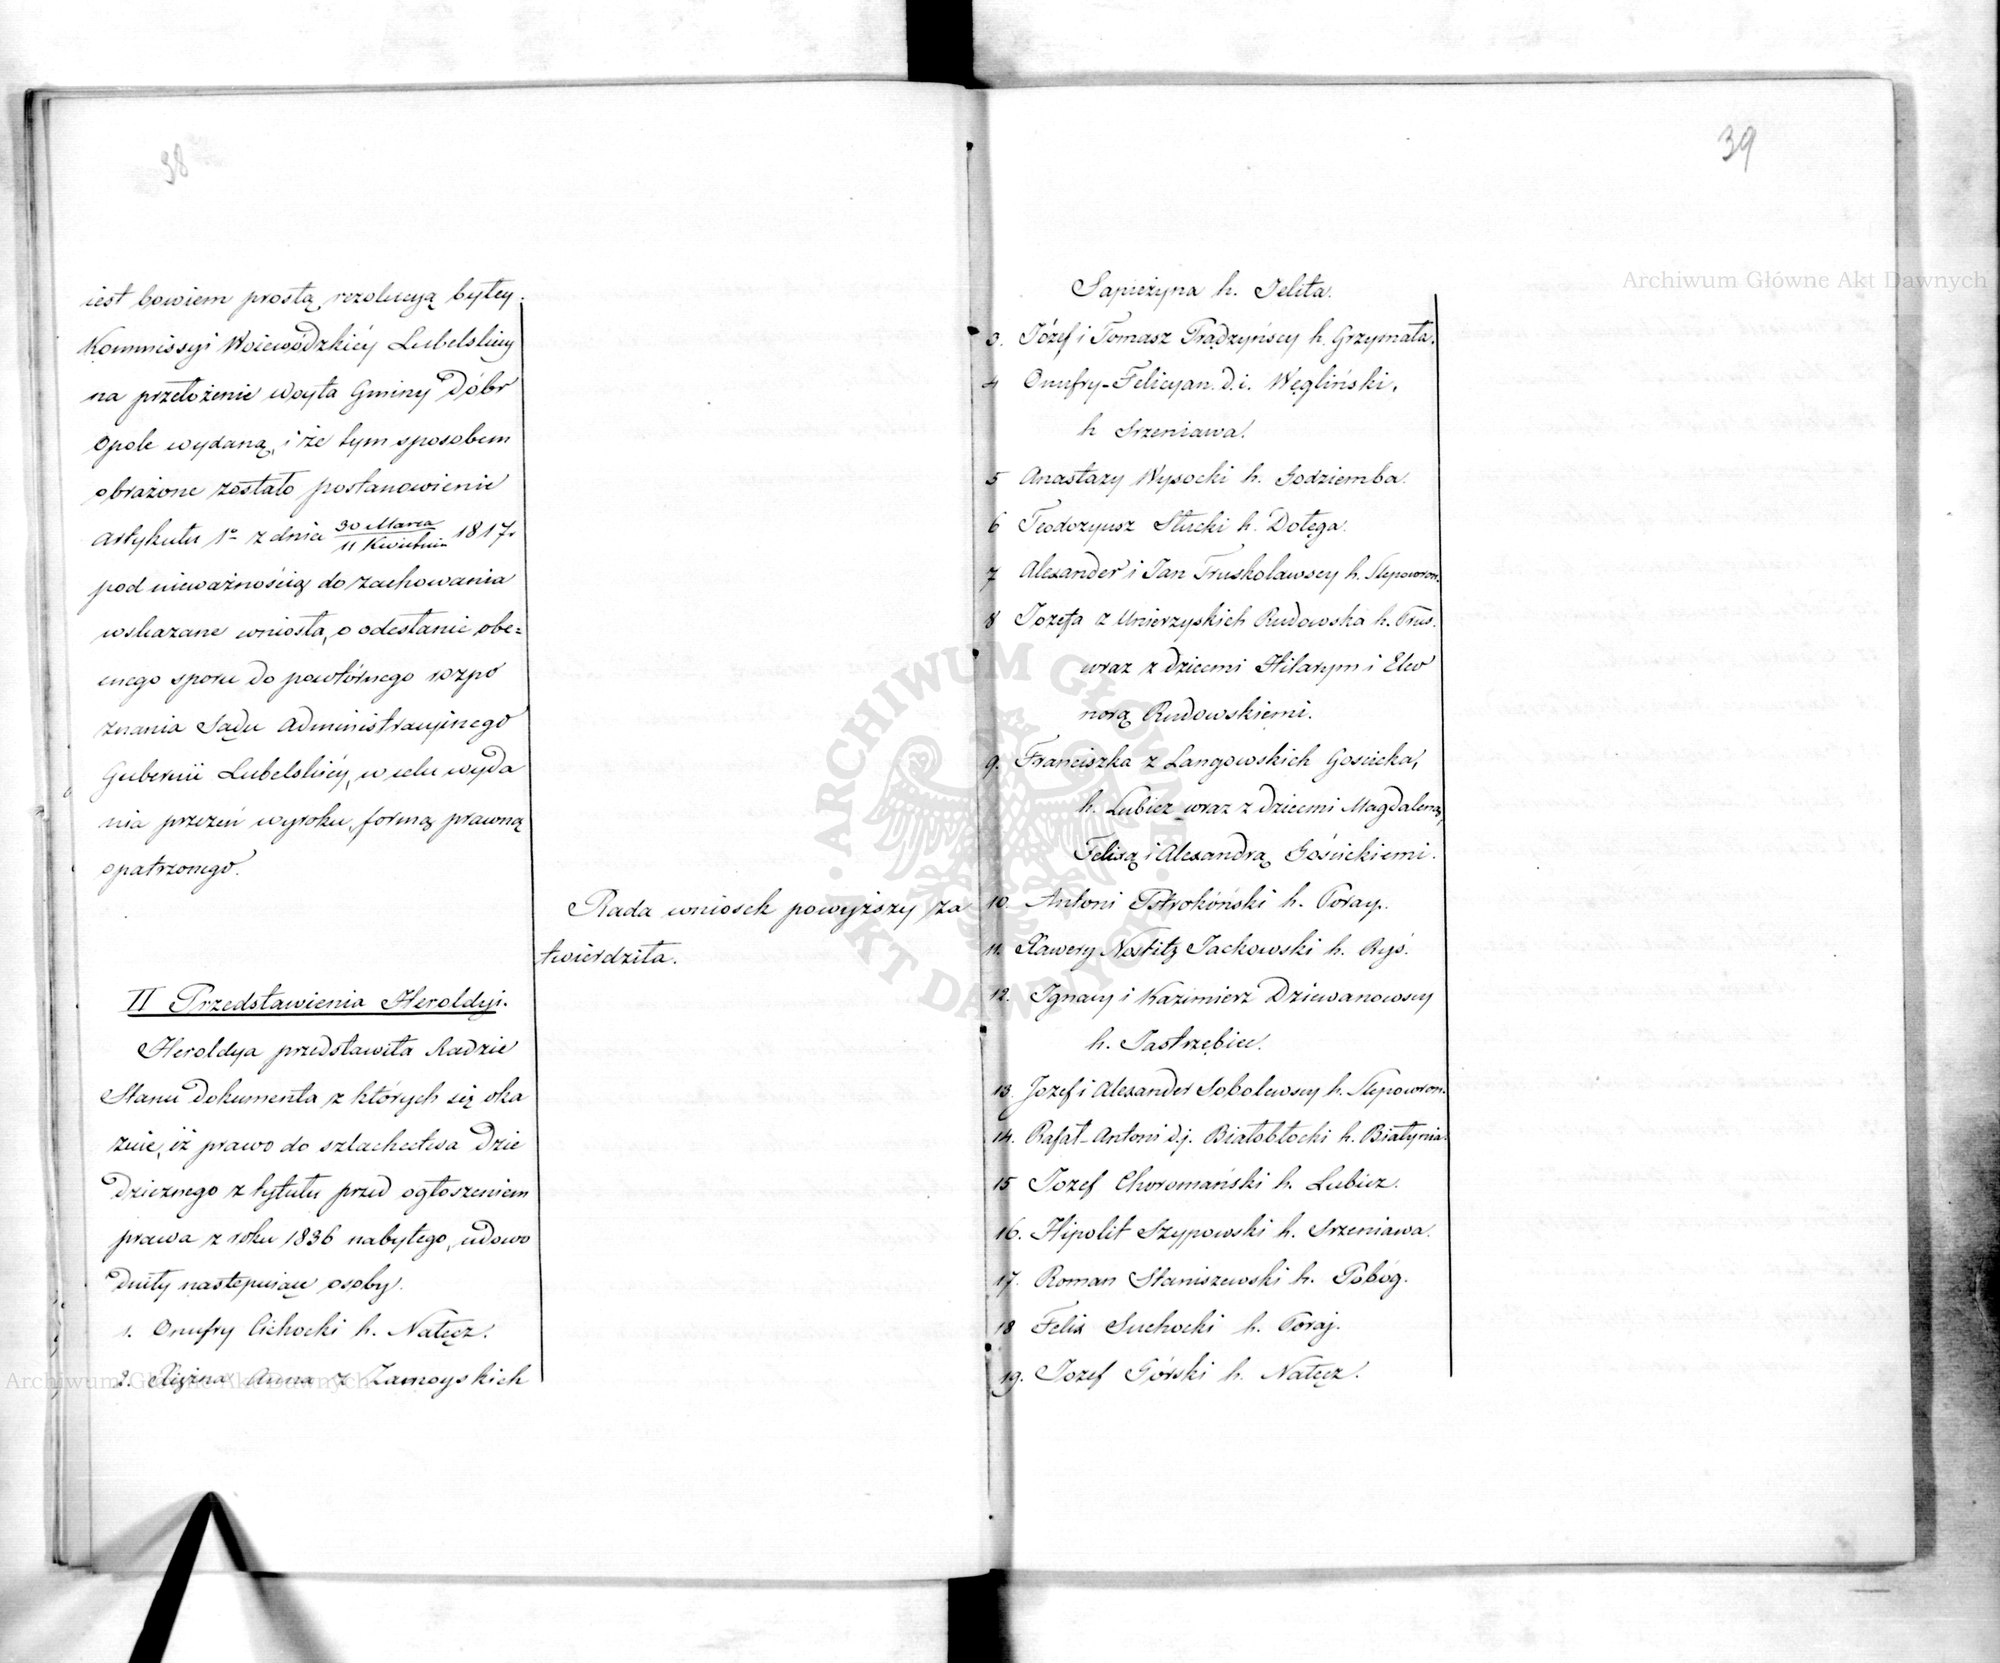 38
iest bowiem prostą rezolucyą byłey
Kommissyi Woiewódzkiéy Lubelskiey
na przełożenie Woyta Gminy Dóbr
Opole wydaną, i że tym sposobem
obrażone zostało postanowienie
Artykułu 1º z dnia 30 Marca / 11 Kwietnia 1817 r.
pod nieważnością do zachowania
wskazane wniosła, o odesłanie obe=
cnego sporu do powtórnego rozpo
znania Sądu Administracyjnego
Gubernii Lubelskiéy, w celu wyda
nia przezeń wyroku, formą prawną
opatrzonego.
Rada wniosek powyższy za
twierdziła.
II Przedstawienia Heroldyi.
Heroldya przedstawiła Radzie
Stanu dokumenta z których się oka
zuie, iż prawo do szlachectwa dzie
dzicznego z tytułu przed ogłoszeniem
prawa z roku 1836 nabytego, udowo
dniły następuiące osoby.
1. Onufry Cichocki h. Nałęcz.
2. Xiężna Anna z Zamoyskich
39
Sapieżyna h. Jelita.
3. Józef i Tomasz Prądzyńscy h. Grzymała.
4 Onufry-Felicyan d. i. Węgliński,
h Srzeniawa.
5 Anastazy Wysocki h. Godziemba.
6 Teodozyusz Słucki h. Dołęga.
7 Alexander i Jan Truskolawscy h. Slepowron.
8 Jozefa z Unierzyskich Rudowska h. Prus.
wraz z dziećmi Hilarym i Eleo
norą Rudowskiemi.
9. Franciszka z Langowskich Goscicka,
h. Lubicz wraz z dziećmi Magdaleną,
Felixą i Alexandrą Gościckiemi.
10. Antoni Pstrokóński h. Poray.
11. Xawery Nostitz Jackowski h. Ryś.
12. Ignacy i Kazimierz Dziewanowscy
h. Jastrzębiec.
13. Jozef i Alexander Sobolewscy h. Slepowron.
14. Rafał-Antoni d.j. Białobłocki h. Białynia.
15 Jozef Choromański h. Lubicz.
16. Hipolit Szypowski h. Srzeniawa.
17. Roman Staniszewski h. Pobóg.
18 Felix Suchocki h. Poraj.
19. Jozef Górski h. Nałęcz.
Archiwum Główne Akt Dawnych
ARCHIWUM GŁÓWNE AKT DAWNYCH
Archiwum Główne Akt Dawnych